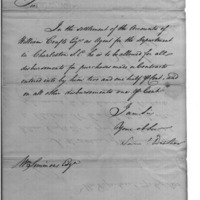 Sir
In the settlement of the Accounts of
William Crafts Esqr as Agent for the department
in Charleston S.C. he is to be allowed for all
disbursements for purchases made or Contracts
entered into by him two and one half pr Cent, and
on all other disbursements one pr Cent.
I am Sir
Your obt
Wm Simmons Esqr